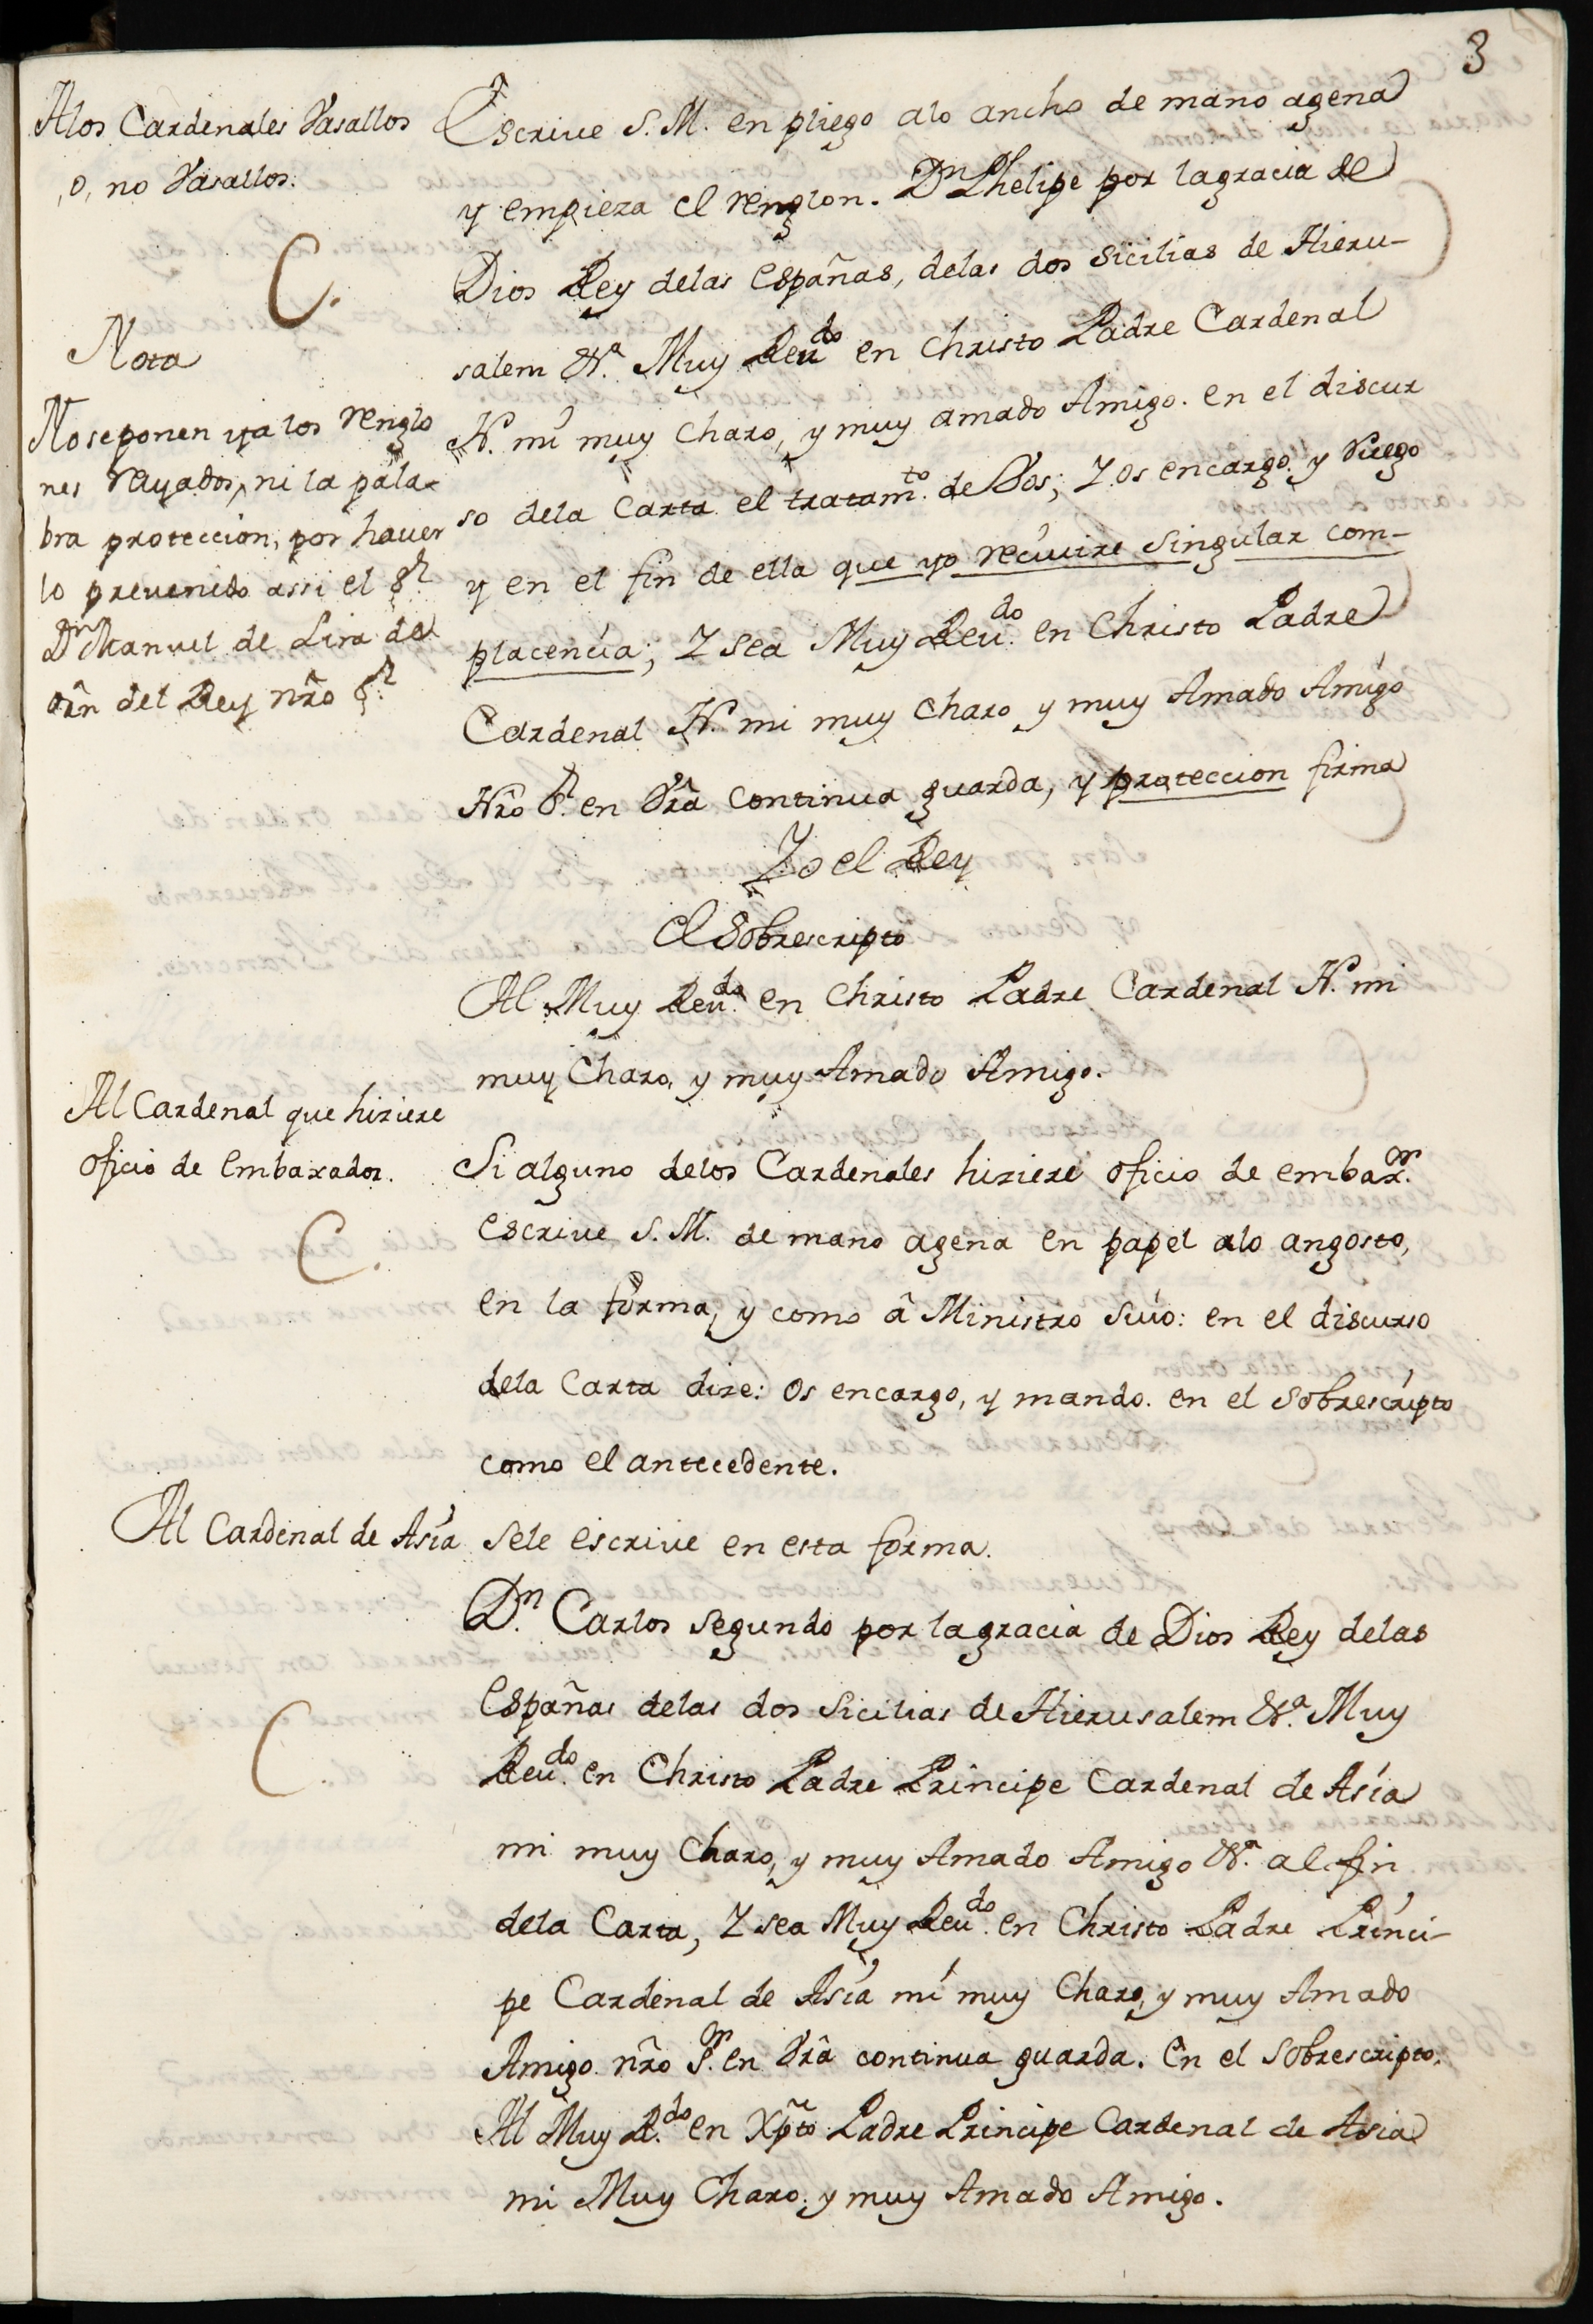 3
Alos Cardenales Vasallos
o, no Vasallos.
C.
Nota
No se ponen ya los renglo
nes rayados, ni la pala-
bra proteccion, por hauer
lo preuenido assi el S.r
D.n Manuel de Lira de
orñ del Rey nr̃o S.r
Escriue S. M. en pliego alo ancho de mano agena
y empieza el renglon. D.n Phelipe por la gracia de
Dios Rey delas españas, delas dos Sicilias de Hieru-
salem &.a Muy Reu.do en Christo Padre Cardenal
N. mi muy Charo, y muy amado Amigo. en el discur
so dela Carta el tratam.to de Vos; Y os encargo y Ruego
y en el fin de ella que yo reciuire singular com-
placencia; Y sea Muy Reu.do en Christo Padre
Cardenal N. mi muy Charo y muy Amado Amigo
Nr̃o S.r en Vr̃a continua guarda, y proteccion firma
Yo el Rey
El Sobrescripto
Al Muy Reu.do en Christo Padre Cardenal N. mi
muy Charo, y muy Amado Amigo.
Al Cardenal que hiziere
oficio de Embaxador.
C.
Si alguno delos Cardenales hiziere oficio de embax.or
escriue S. M. de mano agena en papel alo angosto,
en la forma, y como â Ministro Suio: en el discurso
dela Carta dize: Os encargo, y mando. en el Sobrescripto
como el antecedente.
Al Cardenal de Asía
C.
Sele escriue en esta forma.
D.n Carlos Segundo por la gracia de Dios Rey delas
españas delas dos Sicilias de Hierusalem &.a Muy
Reu.do en Christo Padre Principe Cardenal de Asía
mi muy Charo, y muy Amado Amigo &.a al fin
dela Carta, Y sea Muy Reu.do en Christo Padre Prínci-
pe Cardenal de Asía mí muy Charo, y muy Amado
Amigo nr̃o S.or en Vr̃a continua guarda. En el Sobrescripto.
Al Muy R.do en Xp̃to Padre Principe Cardenal de Asia
mi Muy Charo, y muy Amado Amigo.